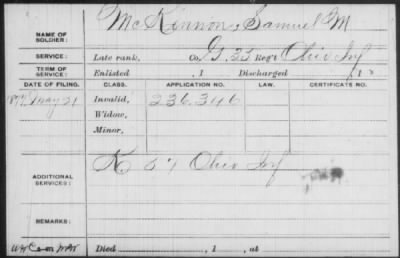 NAME OF SOLDIER: McKinnon, Samuel M
SERVICE: Late rank, Co. G, 35 Reg't Ohio Inf
TERM OF SERVICE: Enlisted , 1 Discharged , 1
DATE OF FILING. CLASS. APPLICATION NO. LAW. CERTIFICATE NO.
May 21 Invalid, 236.346
Widow,
Minor,
ADDITIONAL SERVICES: K 57 Ohio Inf
REMARKS:
Died , 1 , at